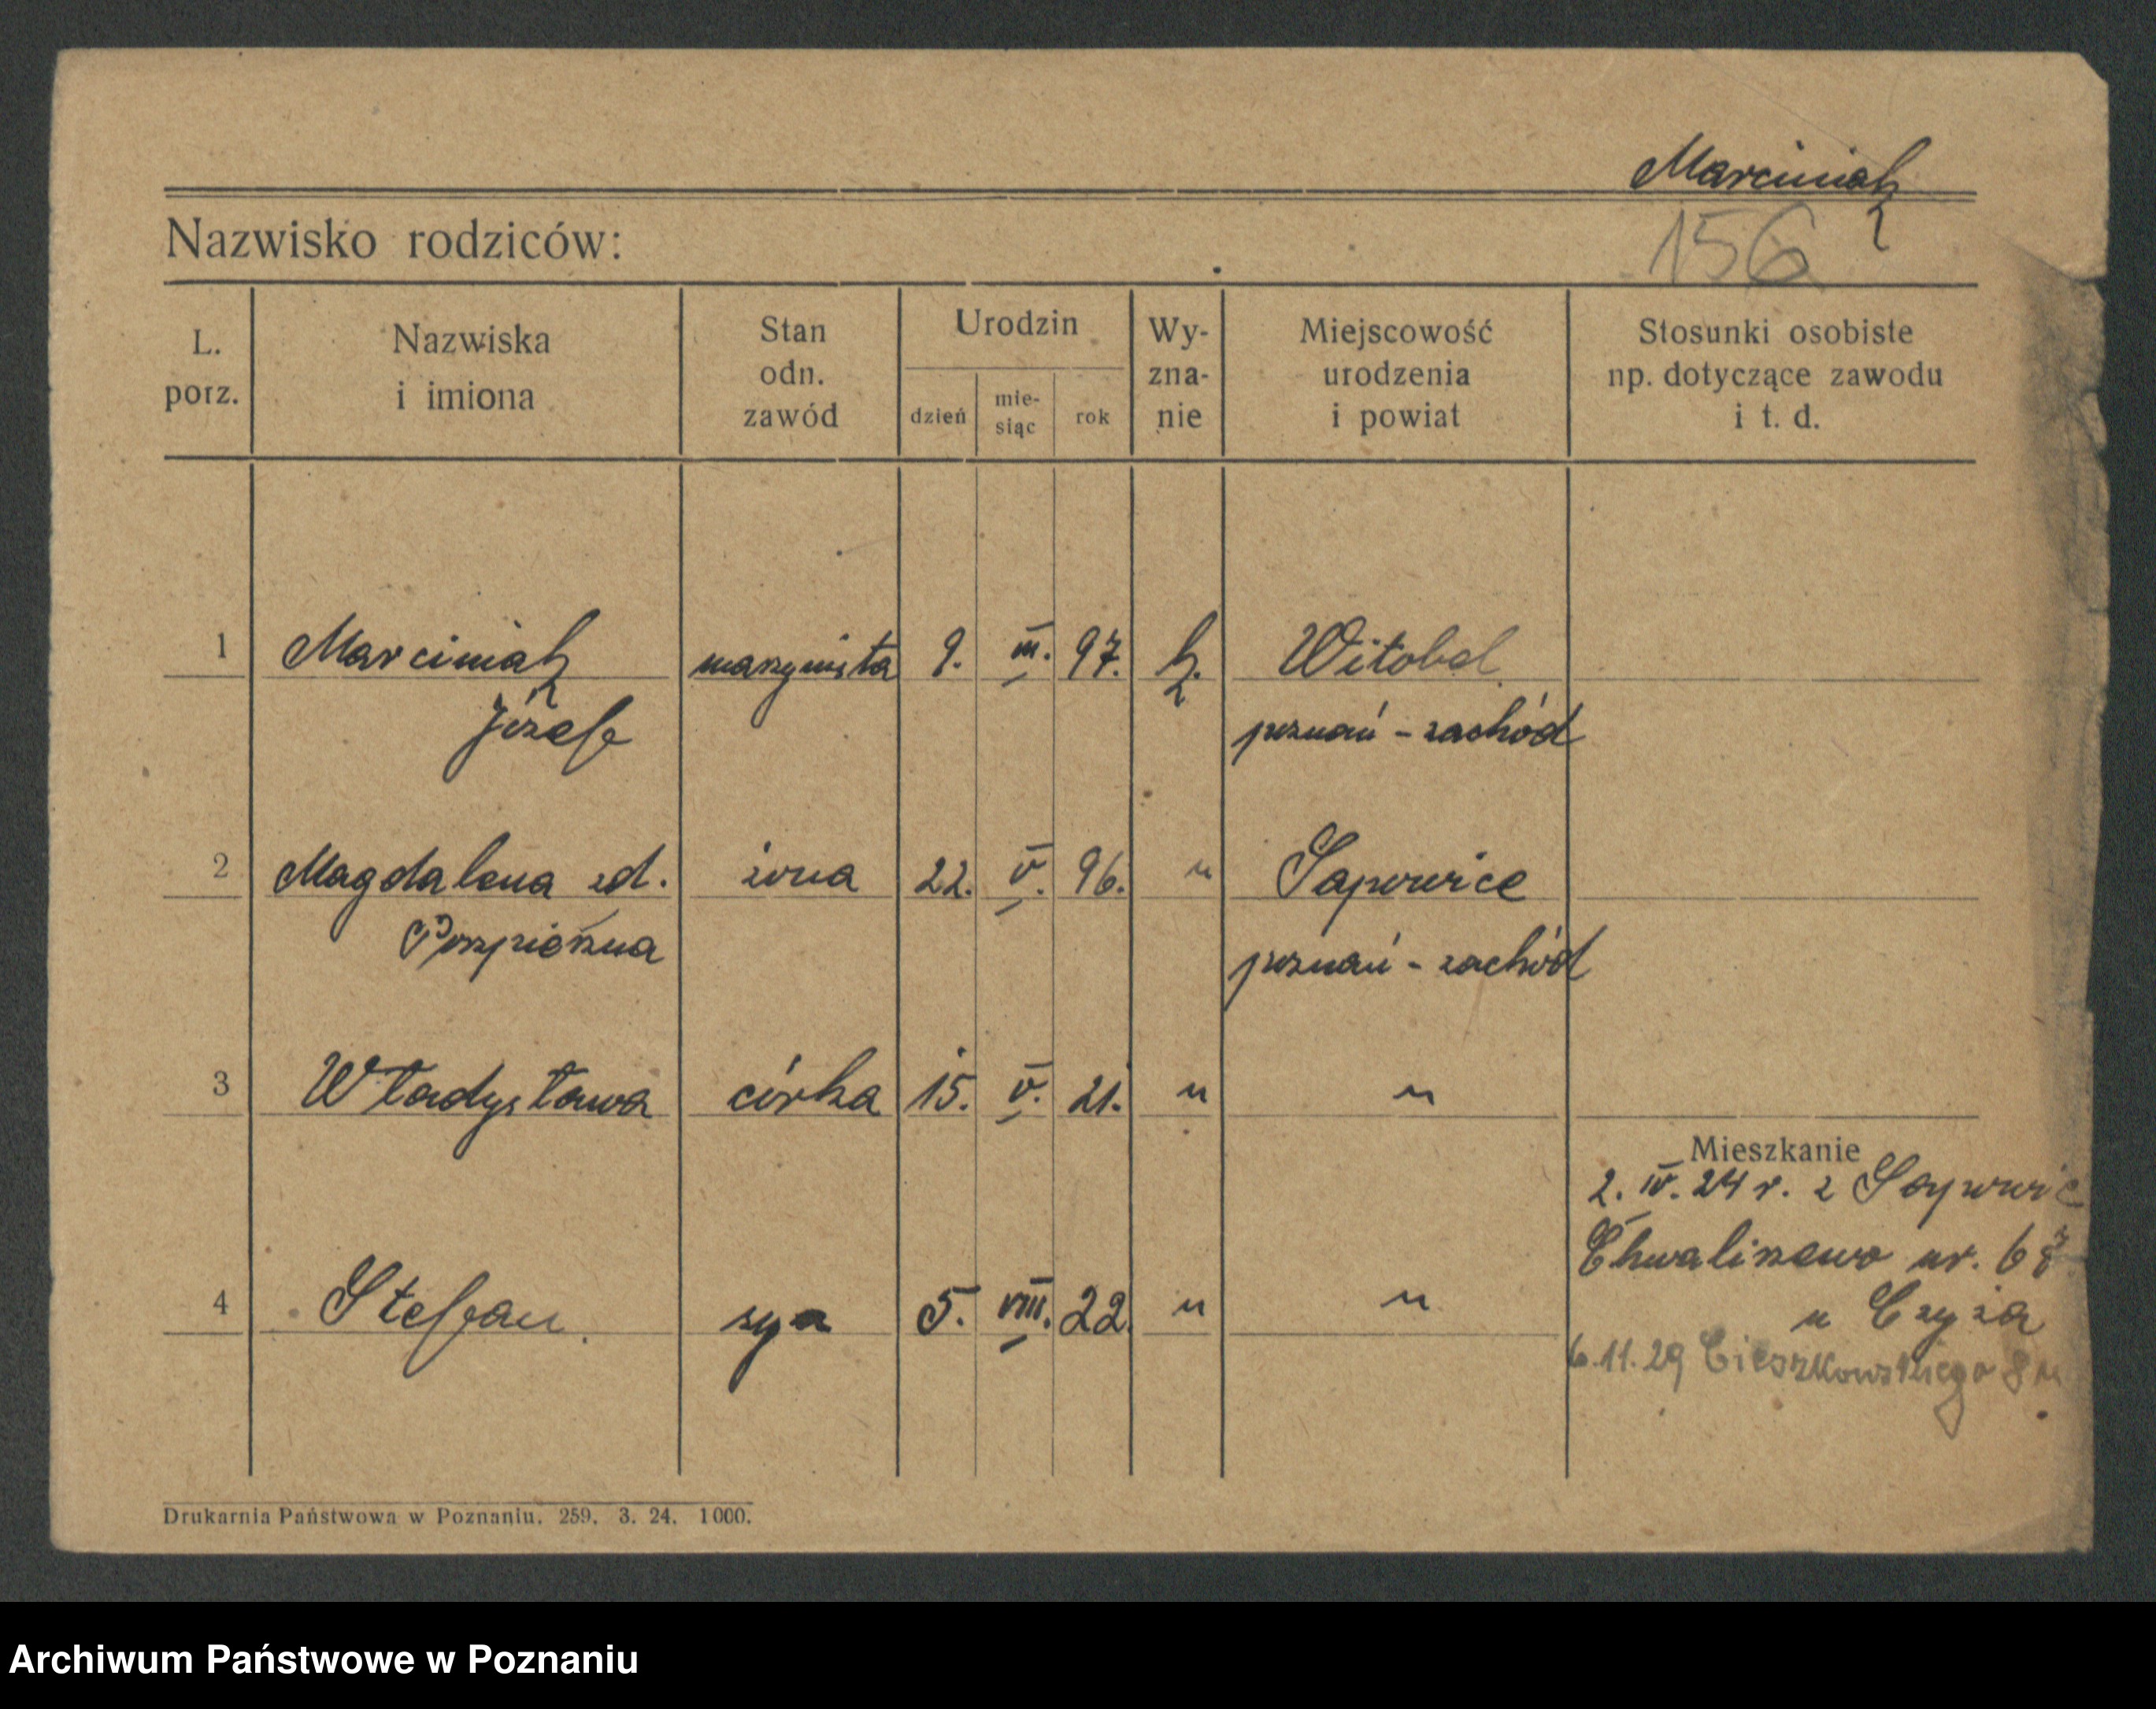 Marciniak
156
Nazwisko rodziców:
L. porz. Nazwiska i imiona Stan odn. zawód Urodzin dzień mie- siąc rok Wy- zna- nie Miejscowość urodzenia i powiat Stosunki osobiste np. dotyczące zawodu i t. d.
1 Marciniak maszynista 9. III. 97. k. Witobel
Józef poznań - zachód
2 Magdalena zd. żona 22. V. 96. " Sapowice
poznań - zachód
3 Władysława córka 15. V. 21. " "
Mieszkanie
2. IV. 24 r. z Sapowic
Chwaliszewo nr. 68
4 Stefan. syn 5. VIII. 22. " "
u Czyża
6.11.29 Cieszkowskiego 8
Drukarnia Państwowa w Poznaniu. 259. 3. 24. 1000.
Archiwum Państwowe w Poznaniu